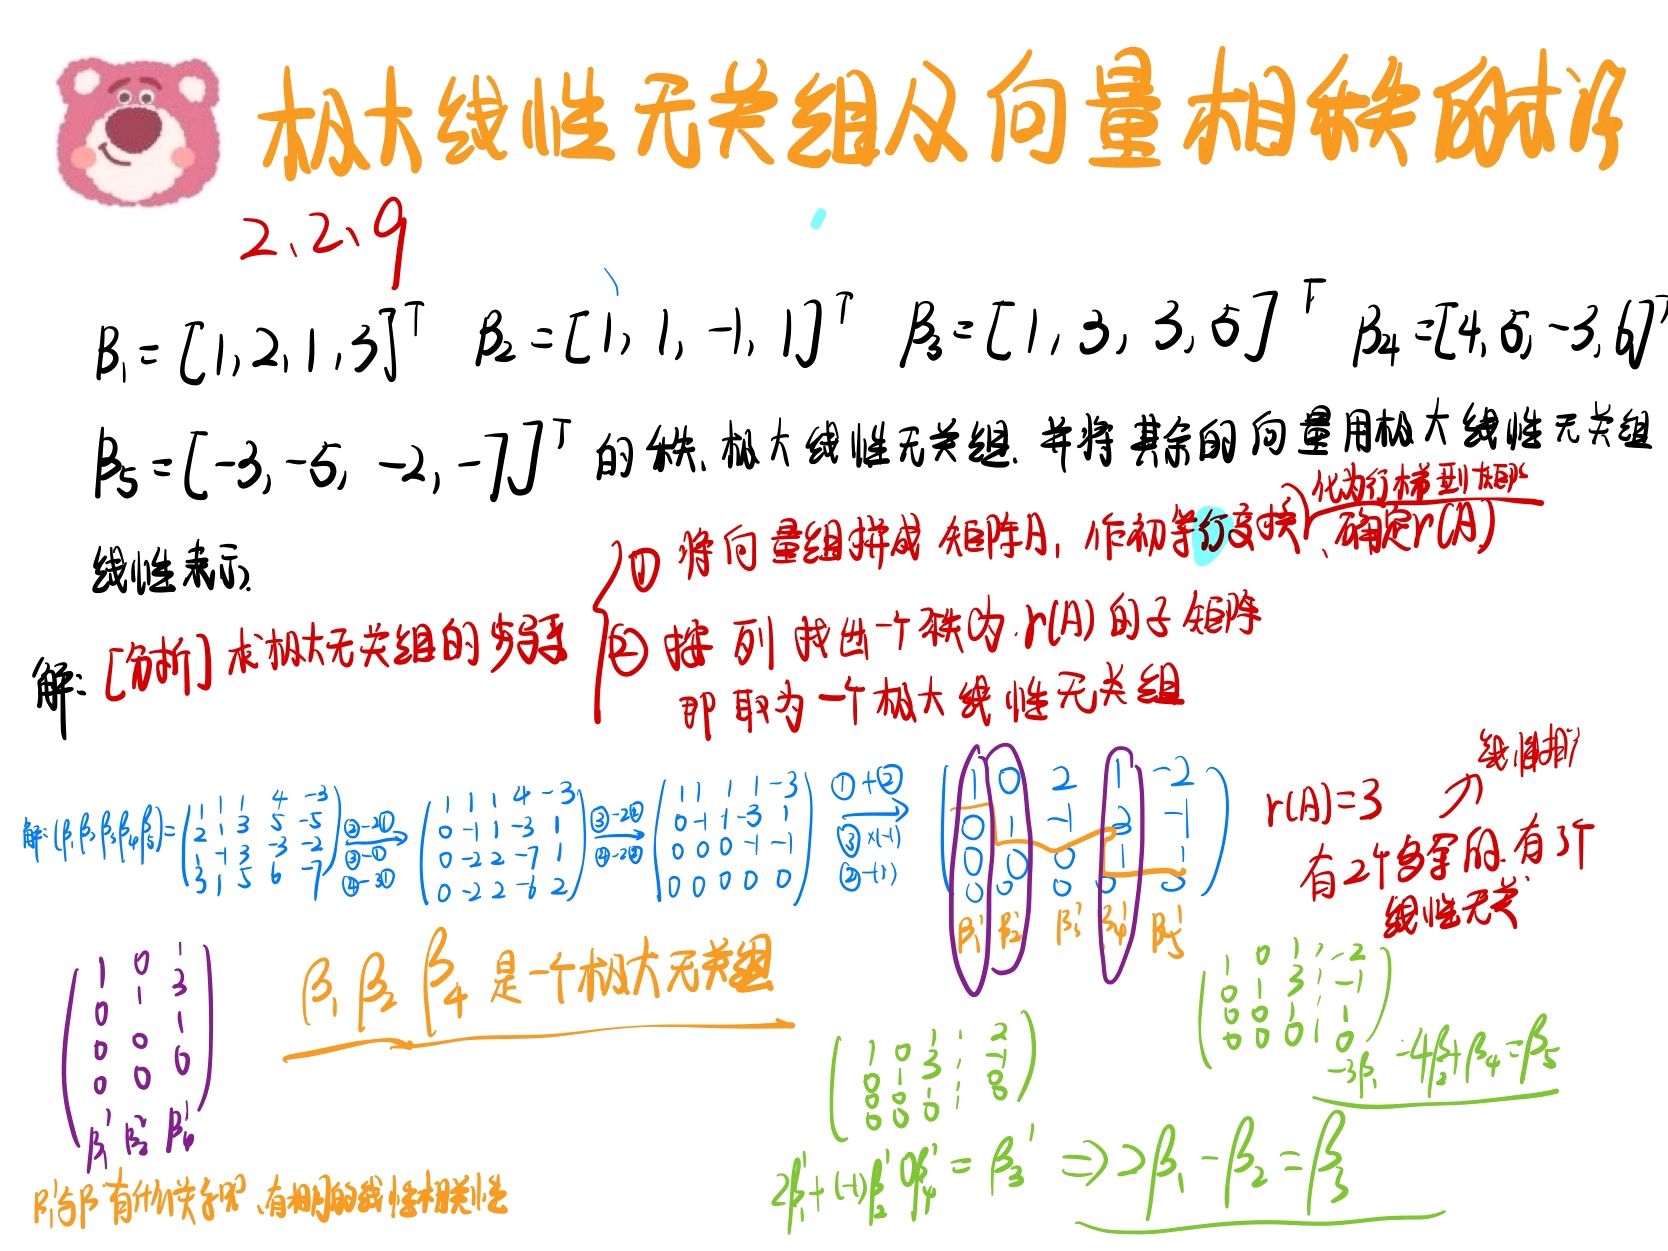 极大线性无关组及向量相秩的
2、2、9
β₁=[1,2,1,3]ᵀ β₂=[1,1,-1,1]ᵀ β₃=[1,3,3,5]ᵀ β₄=[4,5,-3,6]ᵀ
β₅=[-3,-5,-2,-7]ᵀ 的秩、极大线性无关组.并将其余的向量用极大线性无关组
线性表示.
解: [分析] 求极大无关组的步骤
化为行梯型矩阵
① 将向量组拼成矩阵A,作初等行变换、确定r(A)
② 按列找出一个秩为r(A)的子矩阵
即取为一个极大线性无关组
解:(β₁β₂β₃β₄β₅)=
1 1 1 4 -3
2 1 3 5 -5
1 -1 3 -3 -2
3 1 5 6 -7
②-2①
③-①
④-3①
1 1 1 4 -3
0 -1 1 -3 1
0 -2 2 -7 1
0 -2 2 -6 2
③-2②
④-2②
1 1 1 1 -3
0 -1 1 -3 1
0 0 0 -1 -1
0 0 0 0 0
①+②
③×(-1)
②-(1)
1 0 2 1 -2
0 1 -1 3 -1
0 0 0 1 1
0 0 0 0 0
β₁' β₂' β₃' β₄' β₅'
r(A)=3
有2个 的.有3个
线性无关
1 0 1
0 1 3
0 0 1
0 0 0
β₁' β₂' β₄'
β₁ β₂ β₄ 是一个极大无关组
1 0 1 2
0 1 3 -1
0 0 1 0
0 0 0
2β₁'+(-1)β₂' 0β₄'=β₃' ⇒2β₁-β₂=β₃
1 0 1 -2
0 1 3 -1
0 0 1 1
0 0 0 0
-3β₁-4β₂+β₄=β₅
β'与β有什么关系呢、有相同的线性相关性